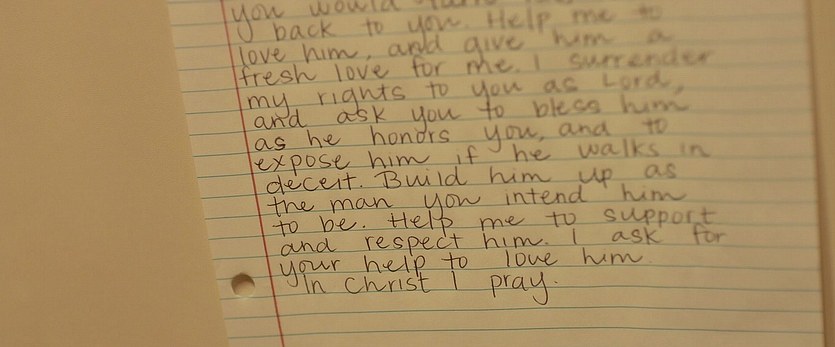 you would
back to you. Help me to
love him, and give him a
fresh love for me. I surrender
my rights to you as Lord,
and ask you to bless him
as he honors you, and to
expose him if he walks in
deceit. Build him up as
the man you intend him
to be. Help me to support
and respect him. I ask for
your help to love him.
In Christ I pray.